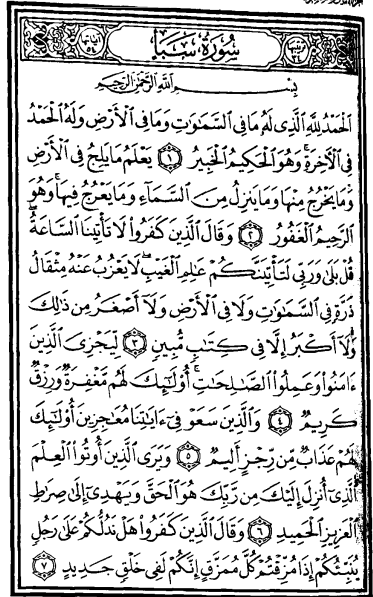 سُورَةُ سَبَإٍ
ترتيبها ٣٤
آياتها ٥٤
بِسْمِ ٱللَّهِ ٱلرَّحْمَٰنِ ٱلرَّحِيمِ
ٱلْحَمْدُ لِلَّهِ ٱلَّذِى لَهُۥ مَا فِى ٱلسَّمَٰوَٰتِ وَمَا فِى ٱلْأَرْضِ وَلَهُ ٱلْحَمْدُ
فِى ٱلْءَاخِرَةِ ۚ وَهُوَ ٱلْحَكِيمُ ٱلْخَبِيرُ ١ يَعْلَمُ مَا يَلِجُ فِى ٱلْأَرْضِ
وَمَا يَخْرُجُ مِنْهَا وَمَا يَنزِلُ مِنَ ٱلسَّمَآءِ وَمَا يَعْرُجُ فِيهَا ۚ وَهُوَ
ٱلرَّحِيمُ ٱلْغَفُورُ ٢ وَقَالَ ٱلَّذِينَ كَفَرُوا۟ لَا تَأْتِينَا ٱلسَّاعَةُ ۖ
قُلْ بَلَىٰ وَرَبِّى لَتَأْتِيَنَّكُمْ عَٰلِمِ ٱلْغَيْبِ ۖ لَا يَعْزُبُ عَنْهُ مِثْقَالُ
ذَرَّةٍ فِى ٱلسَّمَٰوَٰتِ وَلَا فِى ٱلْأَرْضِ وَلَآ أَصْغَرُ مِن ذَٰلِكَ
وَلَآ أَكْبَرُ إِلَّا فِى كِتَٰبٍ مُّبِينٍ ٣ لِّيَجْزِىَ ٱلَّذِينَ
ءَامَنُوا۟ وَعَمِلُوا۟ ٱلصَّٰلِحَٰتِ ۚ أُو۟لَٰٓئِكَ لَهُم مَّغْفِرَةٌ وَرِزْقٌ
كَرِيمٌ ٤ وَٱلَّذِينَ سَعَوْ فِىٓ ءَايَٰتِنَا مُعَٰجِزِينَ أُو۟لَٰٓئِكَ
لَهُمْ عَذَابٌ مِّن رِّجْزٍ أَلِيمٌ ٥ وَيَرَى ٱلَّذِينَ أُوتُوا۟ ٱلْعِلْمَ
ٱلَّذِىٓ أُنزِلَ إِلَيْكَ مِن رَّبِّكَ هُوَ ٱلْحَقَّ وَيَهْدِىٓ إِلَىٰ صِرَٰطِ
ٱلْعَزِيزِ ٱلْحَمِيدِ ٦ وَقَالَ ٱلَّذِينَ كَفَرُوا۟ هَلْ نَدُلُّكُمْ عَلَىٰ رَجُلٍ
يُنَبِّئُكُمْ إِذَا مُزِّقْتُمْ كُلَّ مُمَزَّقٍ إِنَّكُمْ لَفِى خَلْقٍ جَدِيدٍ ٧